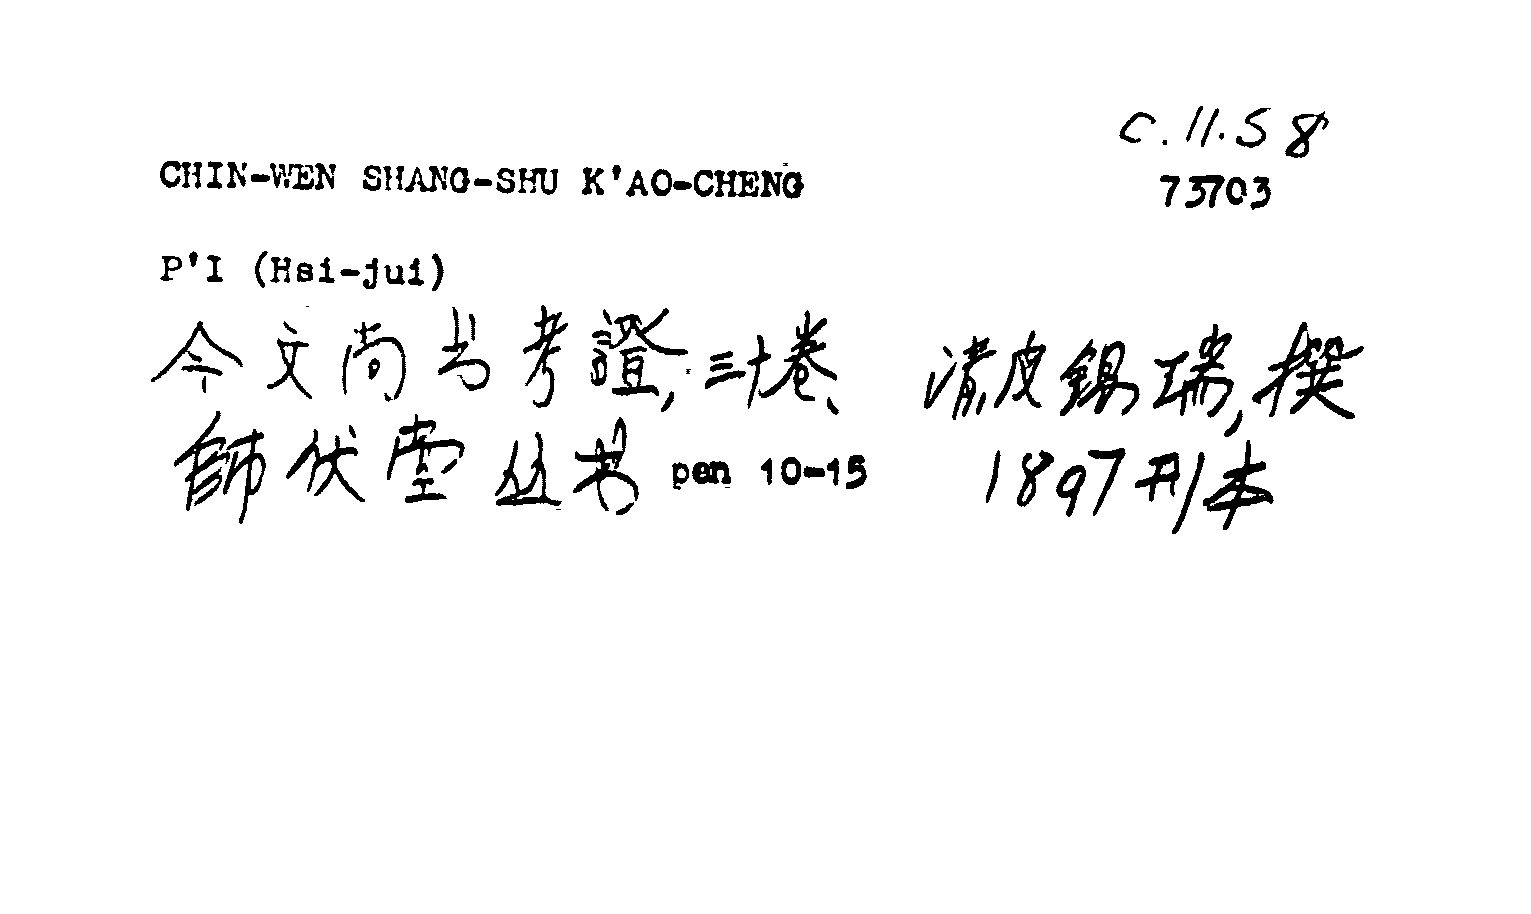 C.11.58
CHIN-WEN SHANG-SHU K'AO-CHENG
73703
P'I (Hsi-jui)
今文尚书考證, 三十卷、 清皮錫瑞, 撰
師伏堂丛书 pen 10-15 1897刊本